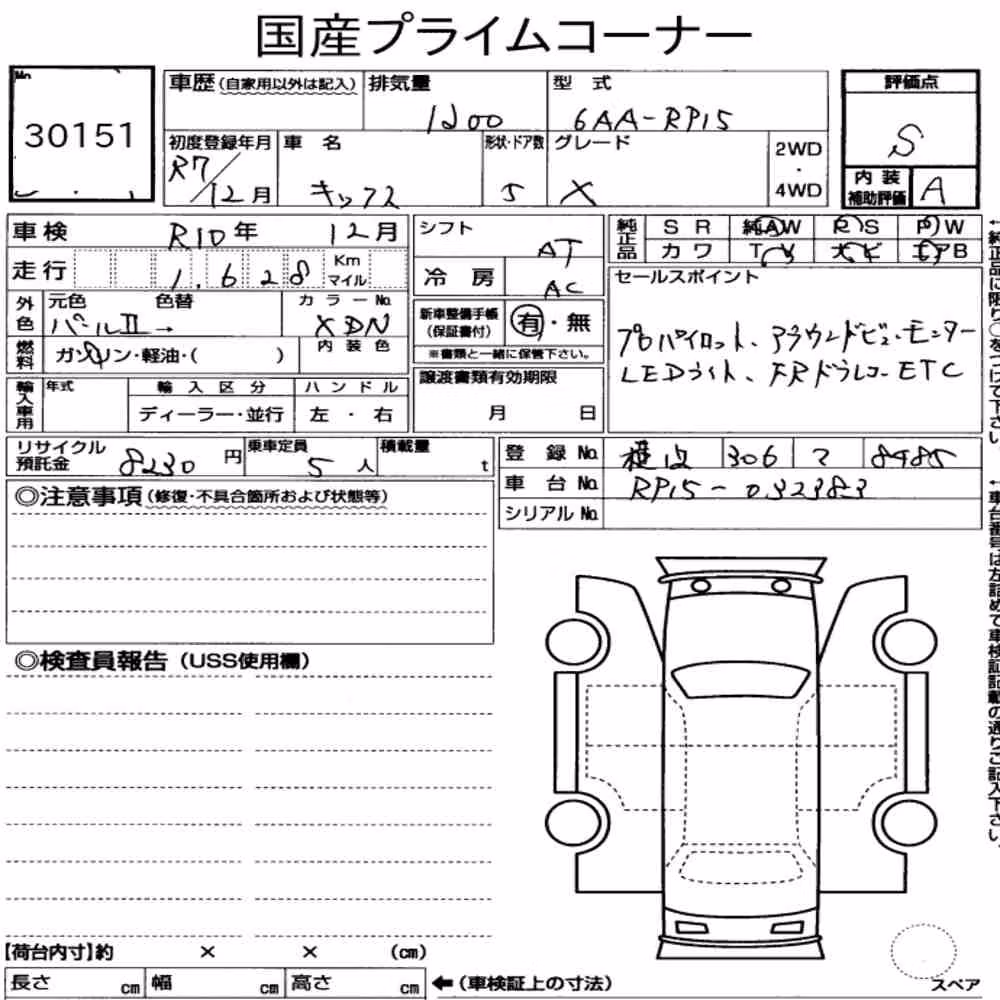 国産プライムコーナー
No.
30151
車歴(自家用以外は記入)
排気量
1200
型 式
6AA-RP15
評価点
S
内装補助評価
A
初度登録年月
R7/12月
車 名
キックス
形状・ドア数
5
グレード
X
2WD
・
4WD
車検 R10年 12月
走行 1,628 Km マイル
外色
元色
パールⅡ→
色替
カラーNo.
XDN
燃料
ガソリン・軽油・( )
内装色
輸入車用
年式
輸入区分
ディーラー・並行
ハンドル
左・右
シフト
AT
冷房
AC
新車整備手帳(保証書付)
有・無
※書類と一緒に保管下さい。
譲渡書類有効期限
月 日
純正品
SR 純AW PS PW
カワ TV ナビ エアB
セールスポイント
プロパイロット、アラウンドビューモニター
LEDライト、FRドラレコ ETC
リサイクル預託金 8230円
乗車定員 5人
積載量 t
登録No. 306 8485
車台No. RP15-032383
シリアルNo.
◎注意事項(修復・不具合箇所および状態等)
◎検査員報告(USS使用欄)
【荷台内寸】約 × × (cm)
長さ cm 幅 cm 高さ cm
←(車検証上の寸法)
スペア
←純正品に限り○をつけて下さい。
←車台番号は左詰めで車検証記載の通りご記入下さい。